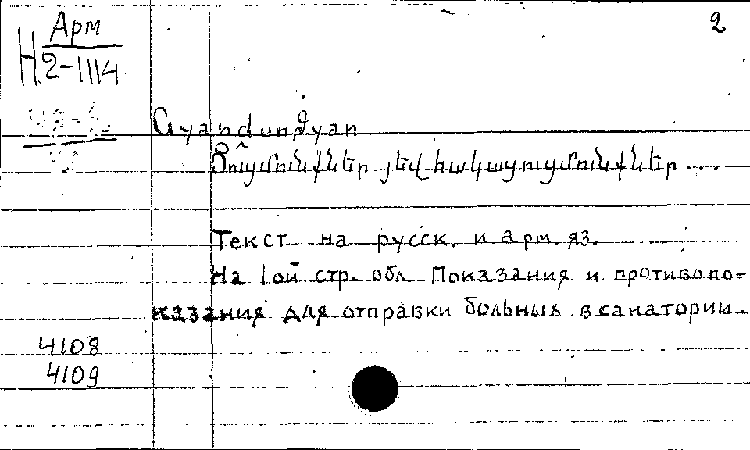 2
Арм
H 2-1114
Ցույմունքներ յեվ հակացույմունքներ ...
Текст на русск. и арм. яз.
На 1ой стр. обл. Показания и противопо-
казания для отправки больных в санатории.
4108
4109